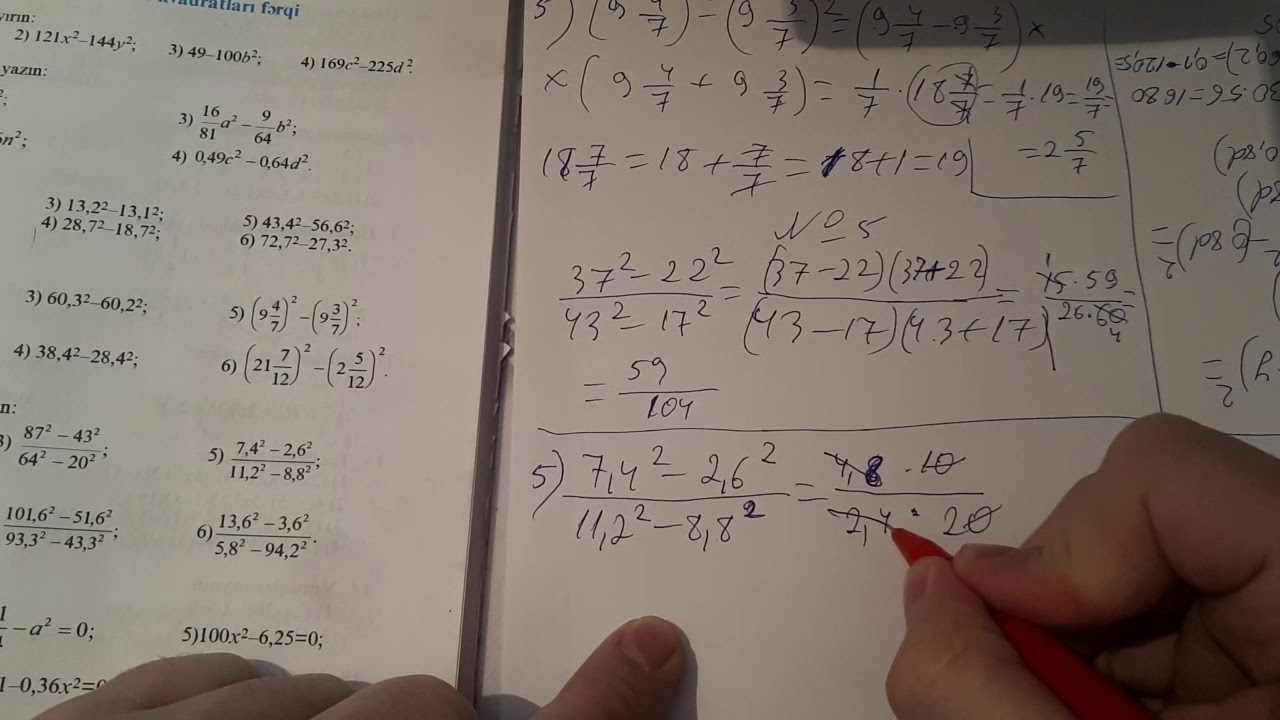 fərqi
2) 121x²–144y²;
3) 49–100b²;
4) 169c²–225d².
yazın:
3) 16/81 a² – 9/64 b²;
4) 0,49c² – 0,64d².
3) 13,2²–13,1²;
4) 28,7²–18,7²;
5) 43,4²–56,6²;
6) 72,7²–27,3².
3) 60,3²–60,2²;
4) 38,4²–28,4²;
5) (9 4/7)² – (9 3/7)²;
6) (21 7/12)² – (2 5/12)².
3) (87² – 43²)/(64² – 20²);
5) (7,4² – 2,6²)/(11,2² – 8,8²);
(101,6² – 51,6²)/(93,3² – 43,3²);
6) (13,6² – 3,6²)/(5,8² – 94,2²).
– a² = 0;
5)100x²–6,25=0;
1–0,36x²=
5) (9 4/7)² – (9 3/7)² = (9 4/7 – 9 3/7) ×
× (9 4/7 + 9 3/7) = 1/7 · (18 7/7) = 1/7 · 19 = 19/7 =
= 2 5/7
18 7/7 = 18 + 7/7 = 18+1=19
№ 5
(37² – 22²)/(43² – 17²) = (37–22)(37+22)/(43–17)(43+17) = 15·59/26·60 =
= 59/104
5) (7,4² – 2,6²)/(11,2² – 8,8²) = 4,8 · 10/2,4 · 20
30·56=1680